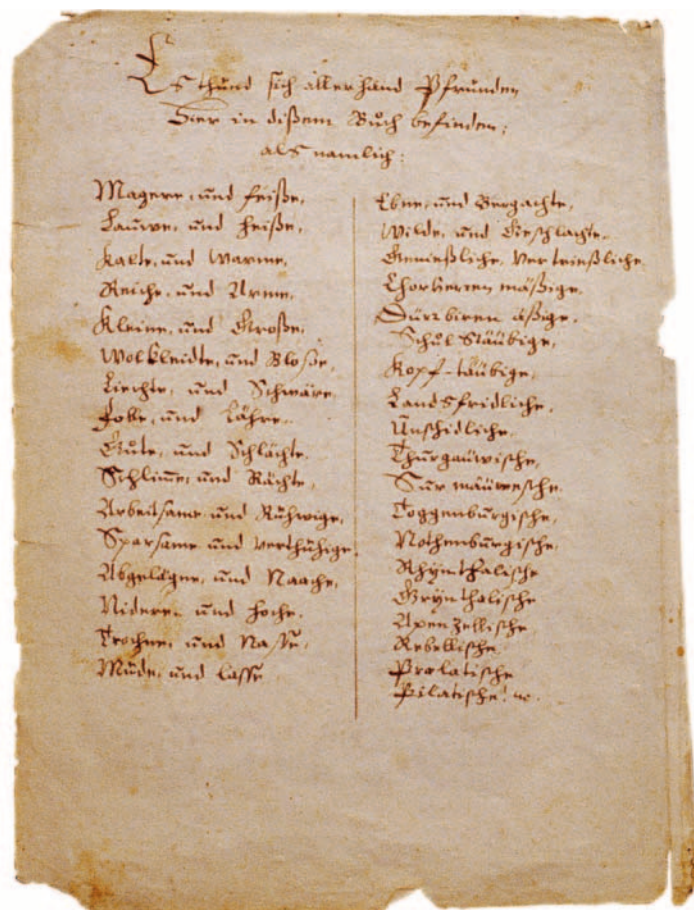 Es thund sich allerhand Pfrunden
Hier in dißem Buch befinden;
als namlich:
Magere, und feiße,
Lauwe, und heiße,
Kalte, und Warme,
Reiche, und Arme,
Kleine, und Große,
Wolkleidte, und Bloße,
Liechte, und Schwäre,
Volle, und Lähre,
Gute, und Schlächte,
Schlime, und Rächte,
Arbeitsame und Ruhwige,
Sparsame und Verthühige
Abgelägne, und Naache,
Nidere, und Hoche,
Trochne, und Nasse,
Müde, und lasse
Ebne, und Bergachte,
Wilde, und Gschlachte,
Genießliche, Vertrießliche
Chorherren mäßige,
Dürrbiren äßige,
Schul Stäubige,
Kopf-täubige,
Landsfridliche,
Unschidliche,
Thurgauwische,
Sur mäuwesche,
Toggenburgische,
Nothenburgische,
Rhÿnthalische
Grÿnthalische
Apenzellische
Rebellische
Prælatische
Pilatische! &c.